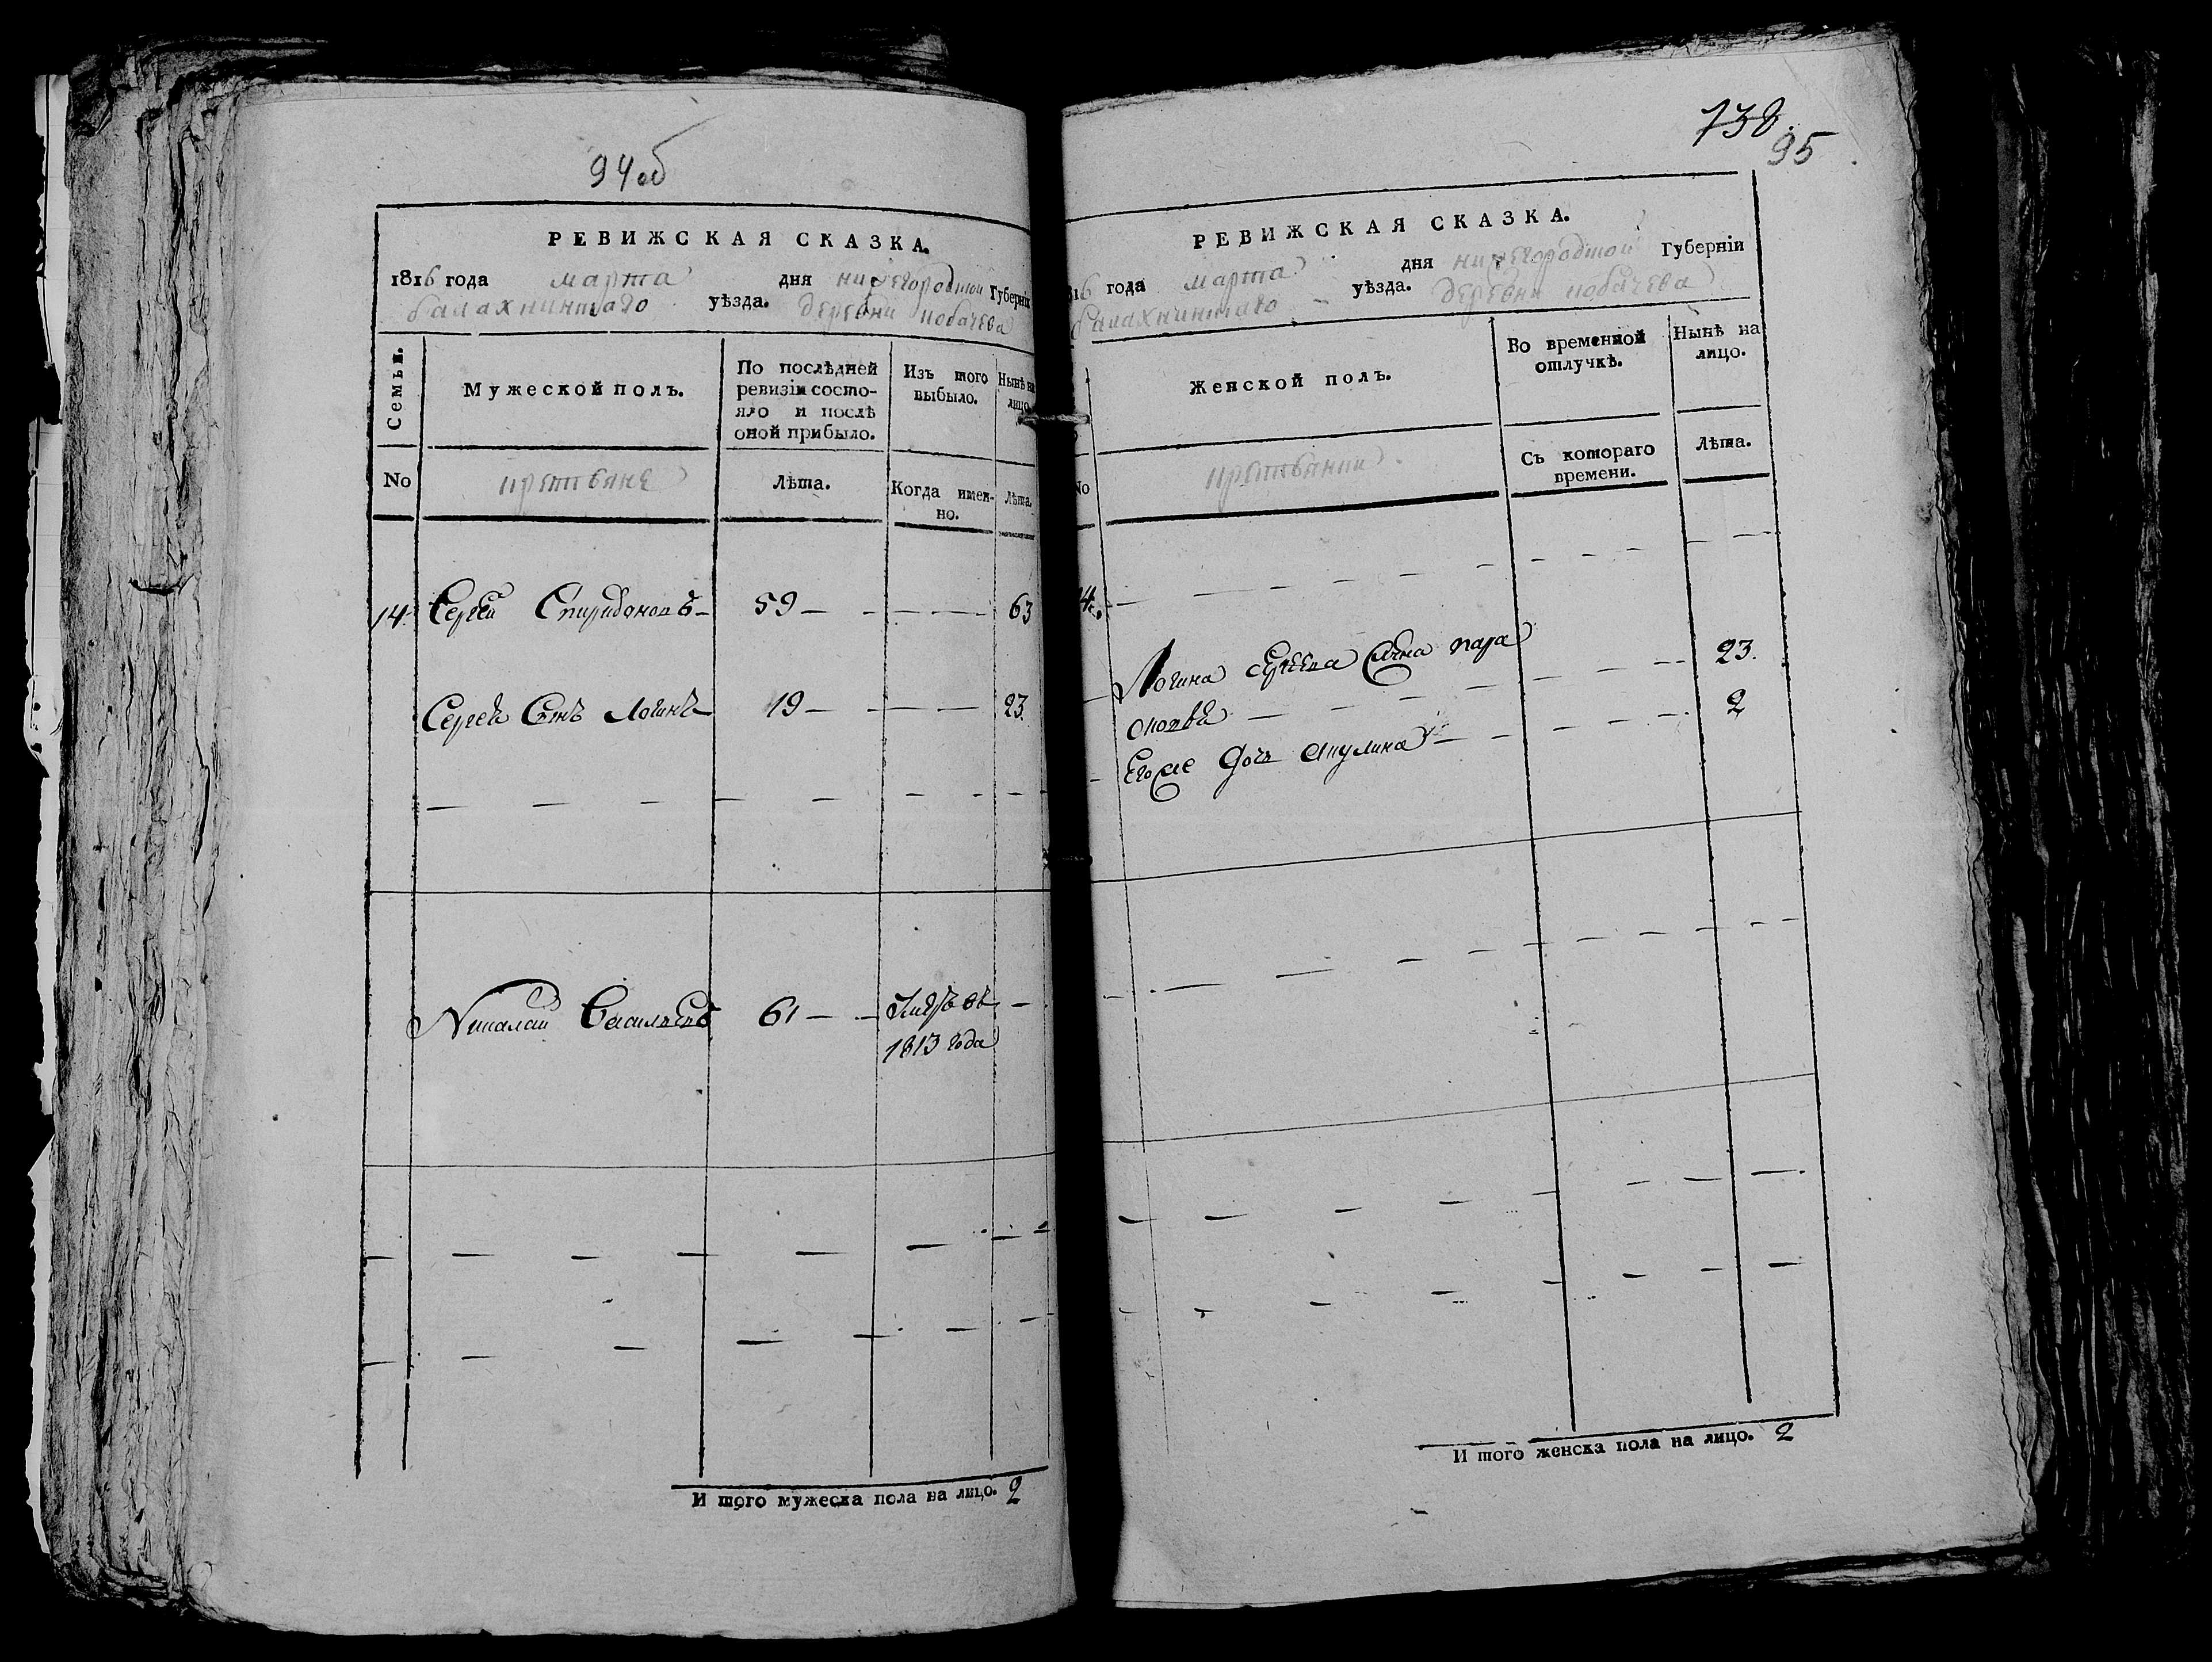 94об
РЕВИЖСКАЯ СКАЗКА.
1816 года марта дня нижегородской Губерніи
балахнинскаго уѣзда. деревни кобачева
Семьи. Мужеской полъ. По послѣдней ревизіи состояло и послѣ оной прибыло. Изъ того выбыло. Нынѣ на лицо.
No крестьяне Лѣта. Когда именно. Лѣта.
14. Сергей Спиридоновъ 59 63
Сергея Сынъ Логинъ 19 23.
Николай Васильевъ 61 Умре въ
1813 года
И того мужеска пола на лицо. 2
738.
95
РЕВИЖСКАЯ СКАЗКА.
16 года марта дня нижегородской Губерніи
балахнинскаго уѣзда. деревни кобачева
Женской полъ. Во временной отлучкѣ. Нынѣ на лицо.
No крестьянки. Съ котораго времени. Лѣта.
4.
Логина Сергеева жена пара
сковья 23.
Его же дочь Акулина 2
И того женска пола на лицо. 2